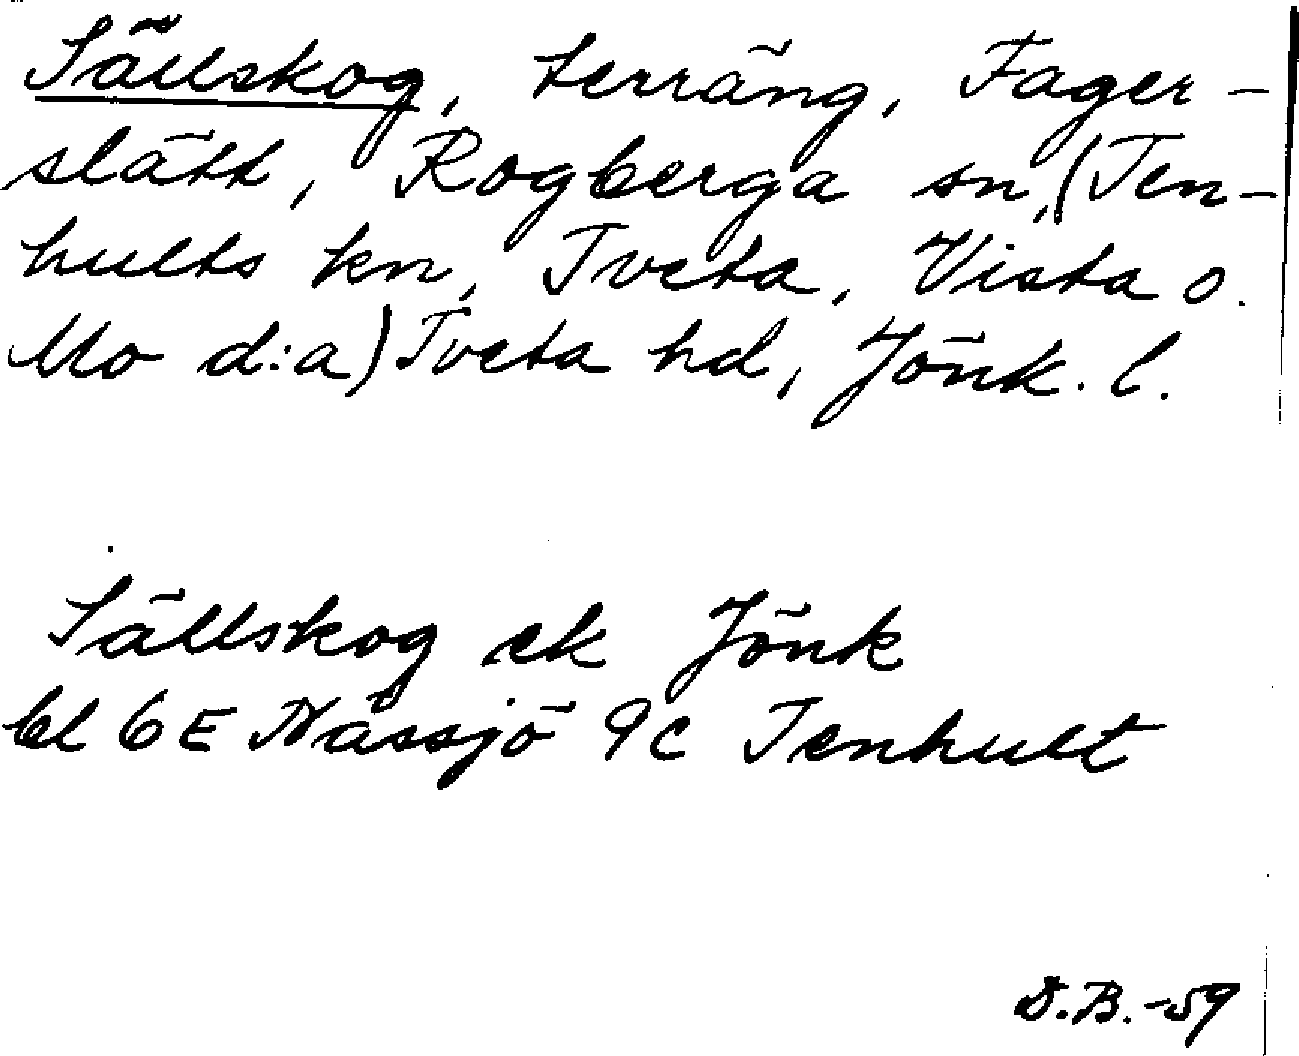 Sällskog, terräng, Fager-
slätt, Rogberga sn, (Ten-
hults kn, Tveta, Vista o.
Mo d:a) Tveta hd, Jönk. l.
Sällskog ek Jönk
bl 6E Nässjö 9c Tenhult
D.B.-59